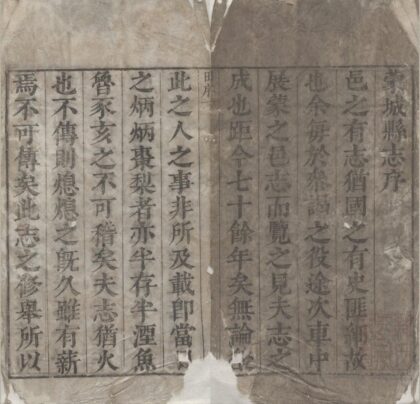 蒙城縣志序
邑之有志猶國之有史匪細故
也余每於叅謁之役途次車中
展蒙之邑志而覽之見夫志之
成也距今七十餘年矣無論
此之人之事非所及載卽當
之炳炳棗梨者亦半存半湮魚
魯豕亥之不可稽矣夫志猶火
也不傳則熄熄之旣久雖有薪
焉不可傳矣此志之修舉所以